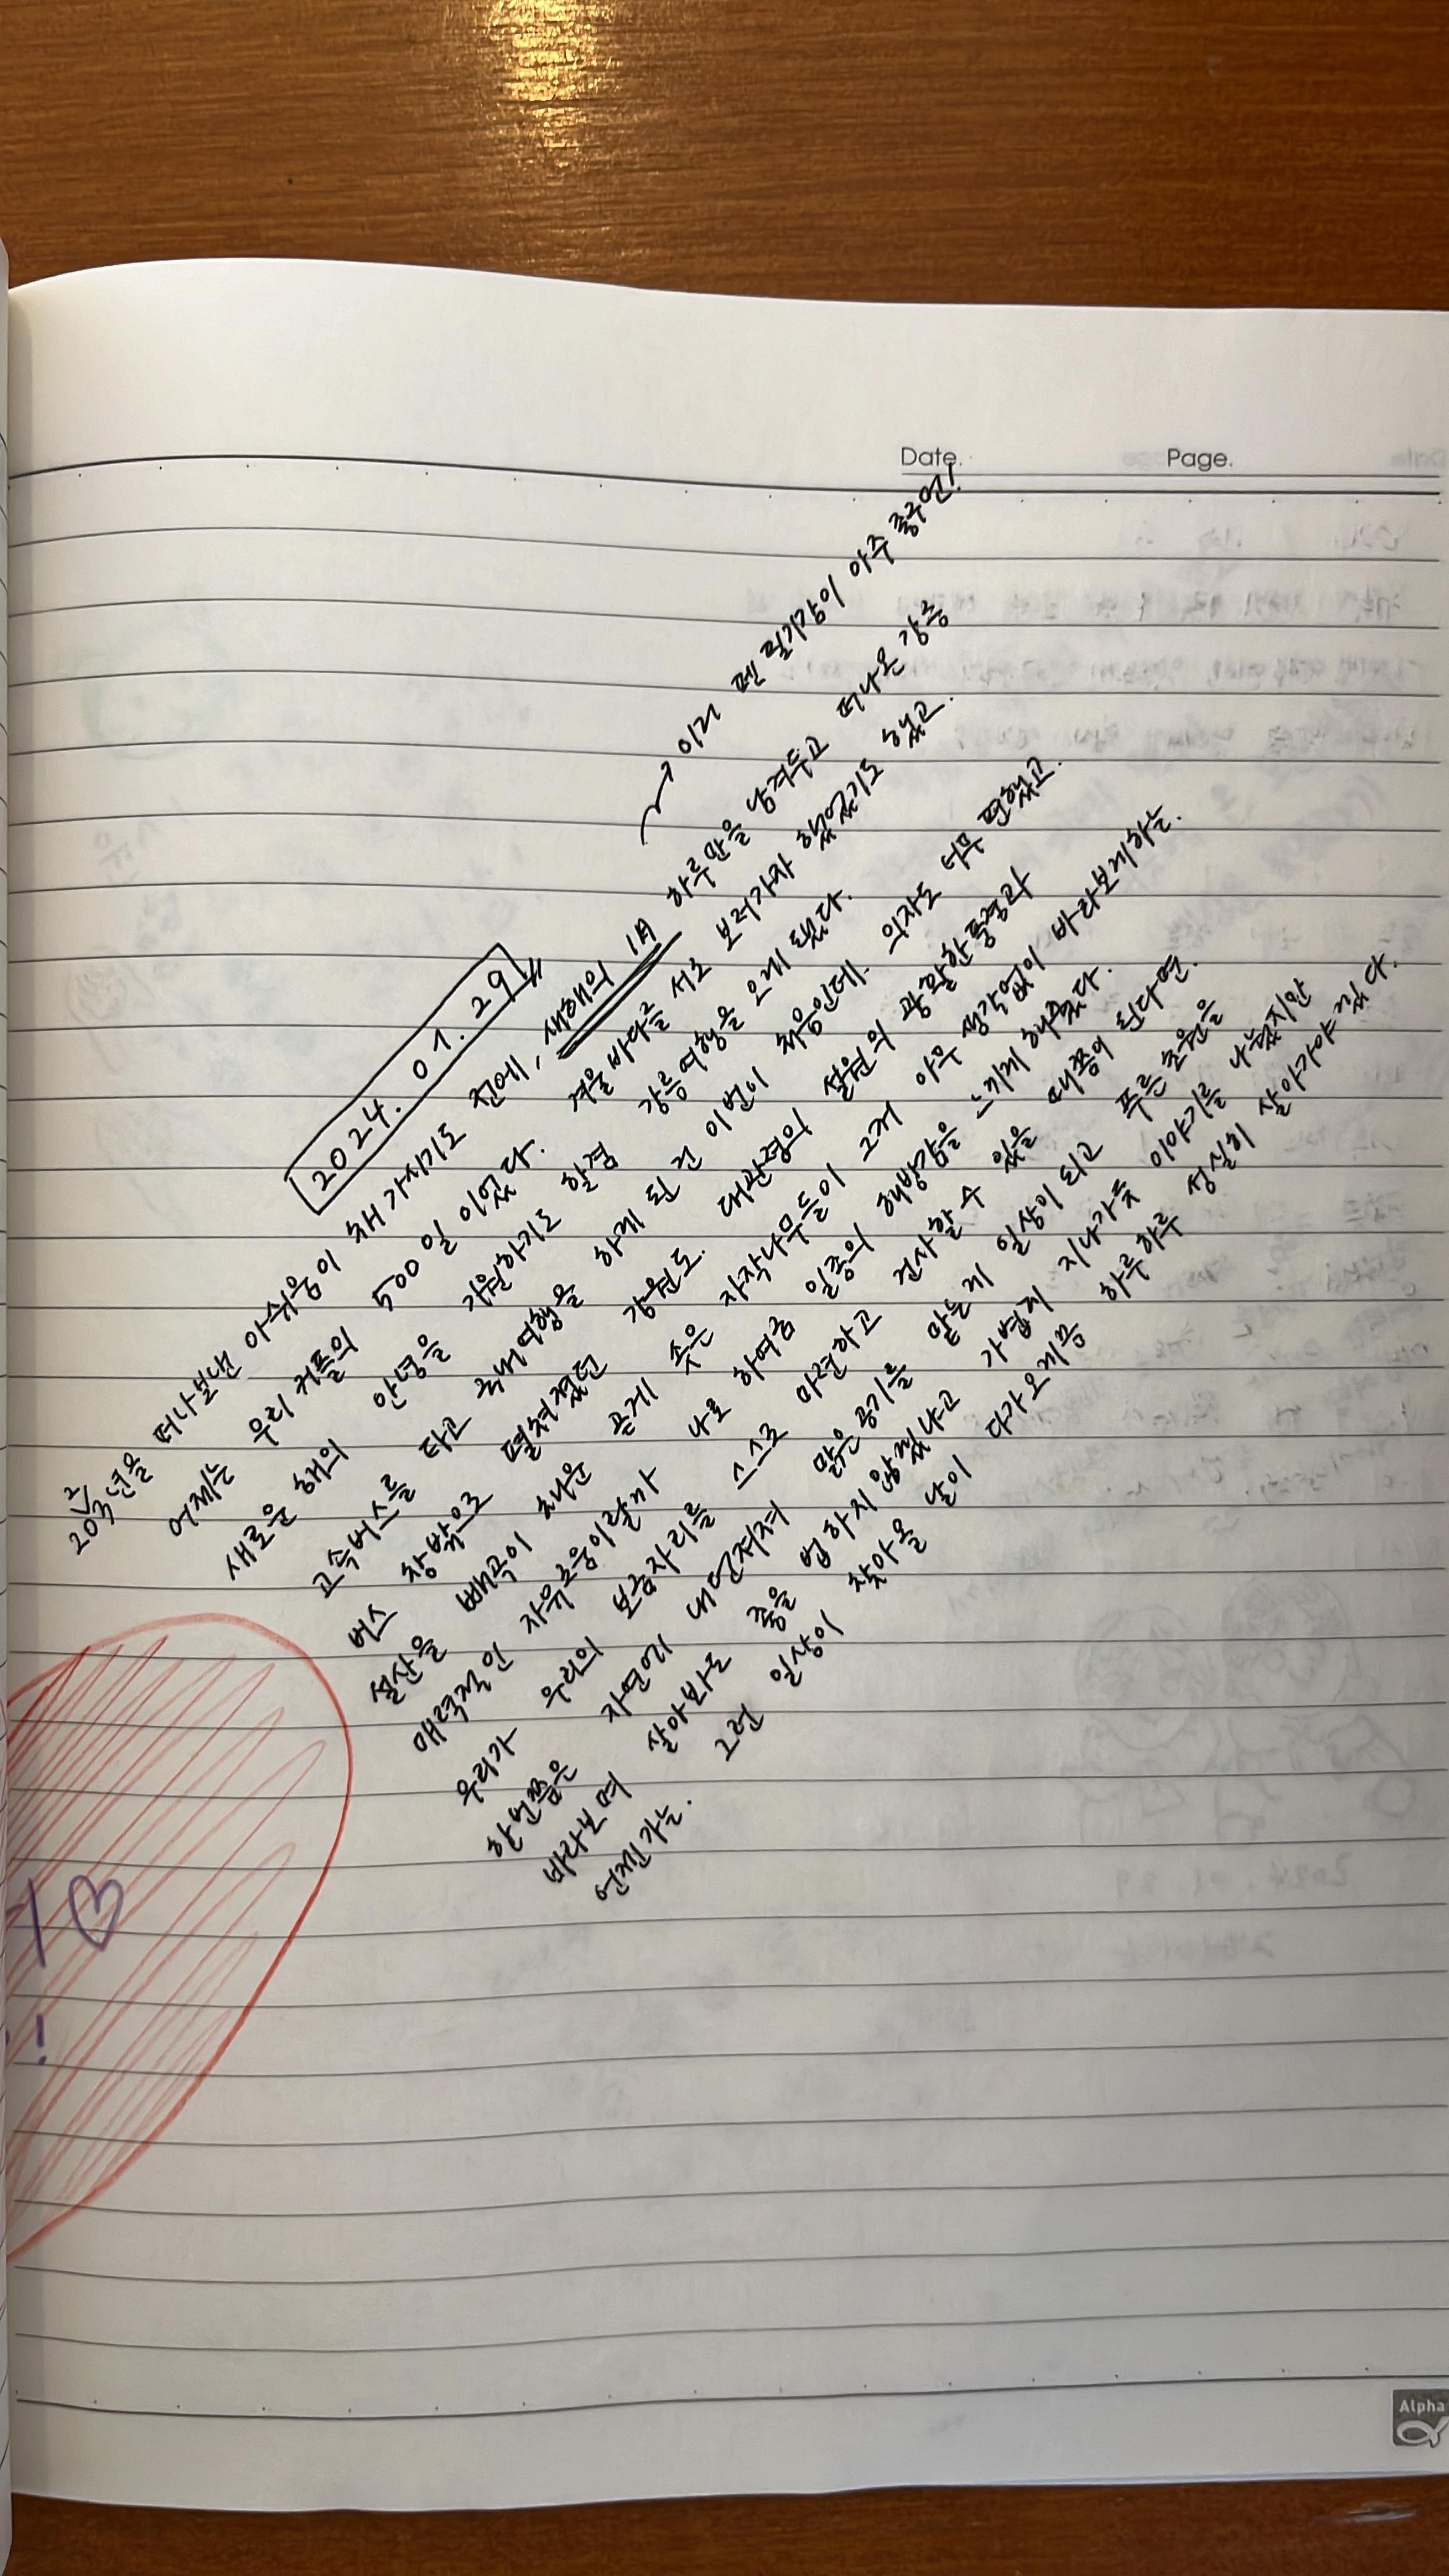 Date.
Page.
이거 펜 필기감이 아주 좋구먼!
2024. 01. 29
2023년을 떠나보낸 아쉬움이 채 가시기도 전에, 새해의 1月 하루만을 남겨두고 떠나온 강릉
어제는 우리 커플의 500일 이었다. 겨울바다를 서로 보러가자 했었기도 했고.
새로운 해의 안녕을 기원하기도 할겸 강릉여행을 오게 됐다.
고속버스를 타고 국내여행을 하게 된 건 이번이 처음인데. 의자도 너무 편했고.
버스 창밖으로 펼쳐졌던 강원도. 대관령의 설원의 광활한 풍경과
설산을 빼곡이 채운 곧게 솟은 자작나무들이 그저 아무 생각없이 바라보게하는.
매력적인 자유로움이랄까 나로 하여금 일종의 해방감을 느끼게 해주었다.
우리가 우리의 보금자리를 스스로 마련하고 건사할 수 있을 때쯤이 된다면.
한번쯤은 자연에 내던져져 맑은 공기를 맡는게 일상이 되고 푸른 초원을
바라보며 살아봐도 좋을 법하지 않겠냐고 가볍게 지나가듯 이야기를 나눴지만
언젠가는. 그런 일상이 찾아올 날이 다가오게끔 하루하루 성실히 살아가야겠다.
!
Alpha